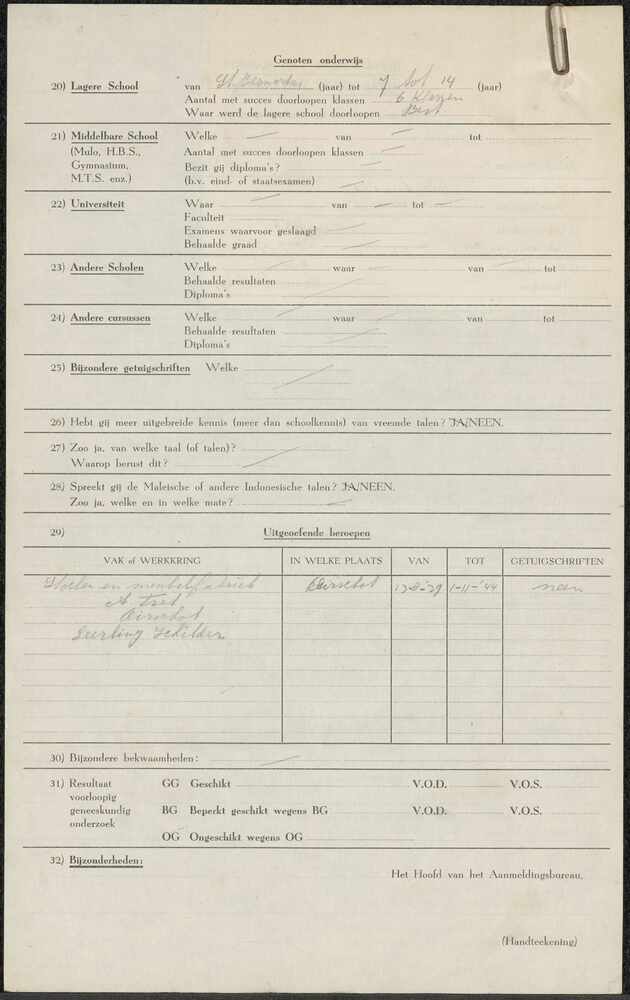 Genoten onderwijs
20) Lagere School van St. (jaar) tot 7 tot 14 (jaar)
Aantal met succes doorloopen klassen 6 klassen
Waar werd de lagere school doorloopen Best
21) Middelbare School Welke — van — tot —
(Mulo, H.B.S., Aantal met succes doorloopen klassen —
Gymnasium, Bezit gij diploma's? —
M.T.S. enz.) (b.v. eind- of staatsexamen) —
22) Universiteit Waar — van — tot —
Faculteit —
Examens waarvoor geslaagd —
Behaalde graad —
23) Andere Scholen Welke — waar — van — tot
Behaalde resultaten —
Diploma's —
24) Andere cursussen Welke — waar — van — tot
Behaalde resultaten —
Diploma's —
25) Bijzondere getuigschriften Welke —
26) Hebt gij meer uitgebreide kennis (meer dan schoolkennis) van vreemde talen? JA/NEEN.
27) Zoo ja, van welke taal (of talen)? —
Waarop berust dit? —
28) Spreekt gij de Maleische of andere Indonesische talen? JA/NEEN.
Zoo ja, welke en in welke mate? —
29) Uitgeoefende beroepen
VAK of WERKKRING IN WELKE PLAATS VAN TOT GETUIGSCHRIFTEN
Stoelen en meubelfabriek Oirschot 1-11-'44 neen
A
Oirschot
Leerling Schilder
30) Bijzondere bekwaamheden: —
31) Resultaat GG Geschikt V.O.D. V.O.S.
voorloopig
geneeskundig BG Beperkt geschikt wegens BG V.O.D. V.O.S.
onderzoek
OG Ongeschikt wegens OG
32) Bijzonderheden:
Het Hoofd van het Aanmeldingsbureau,
(Handteekening)